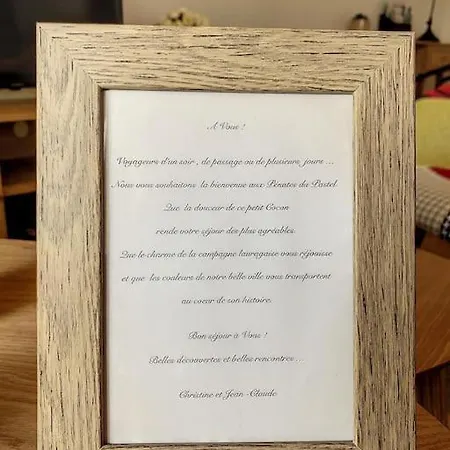 A Vous !
Voyageurs d'un soir , de passage ou de plusieurs jours ...
Nous vous souhaitons la bienvenue aux Pénates du Pastel.
Que la douceur de ce petit Cocon
rende votre séjour des plus agréables.
Que le charme de la campagne lauragaise vous réjouisse
et que les couleurs de notre belle ville vous transportent
au coeur de son histoire.
Bon séjour à Vous !
Belles découvertes et belles rencontres ...
Christine et Jean -Claude